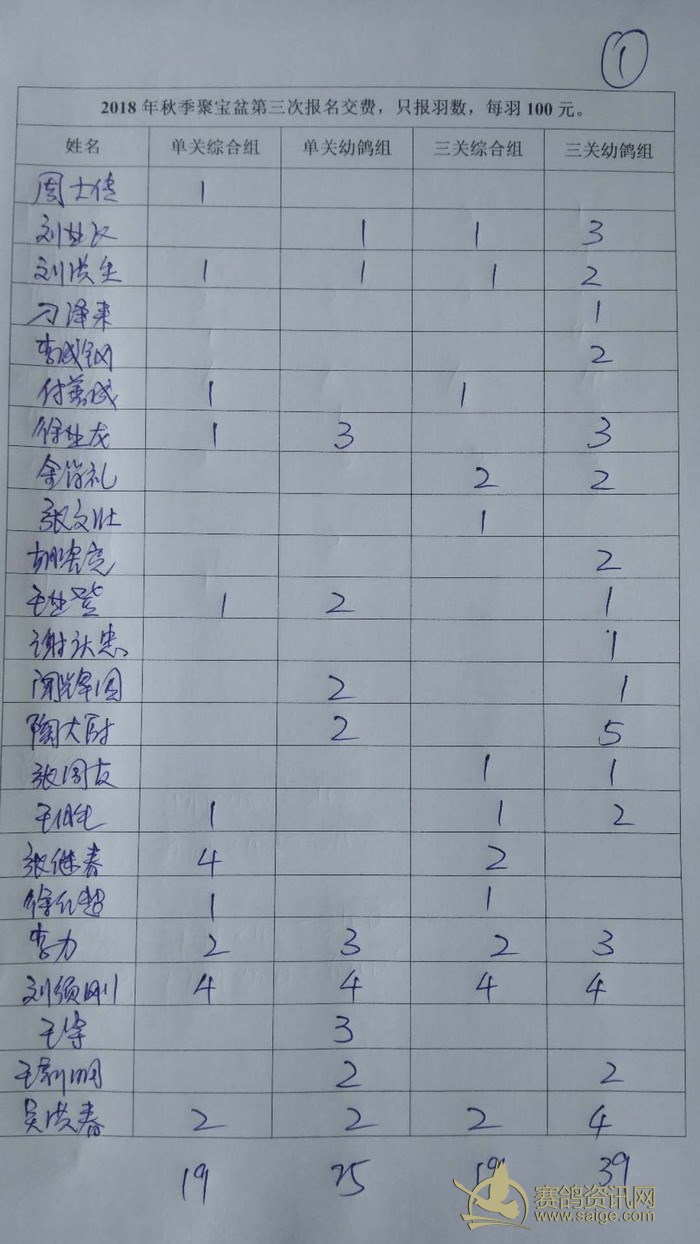 1
2018年秋季聚宝盆第三次报名交费，只报羽数，每羽100元。
姓名 单关综合组 单关幼鸽组 三关综合组 三关幼鸽组
周士传 1
1 1 3
刘洪生 1 1 1 2
刁泽来 1
李成钢 2
付万成 1 1
徐 龙 1 3 3
金 礼 2 2
张文 1
胡 亮 2
王 1 2 1
谢 忠 1
2 1
陶大 2 5
张 友 1 1
王 1 1 2
张继春 4 2
徐 超 1 1
李力 2 3 2 3
刘 刚 4 4 4 4
王宇 3
王 明 2 2
吴洪春 2 2 2 4
19 25 19 39
赛鸽资讯网
www.saige.com